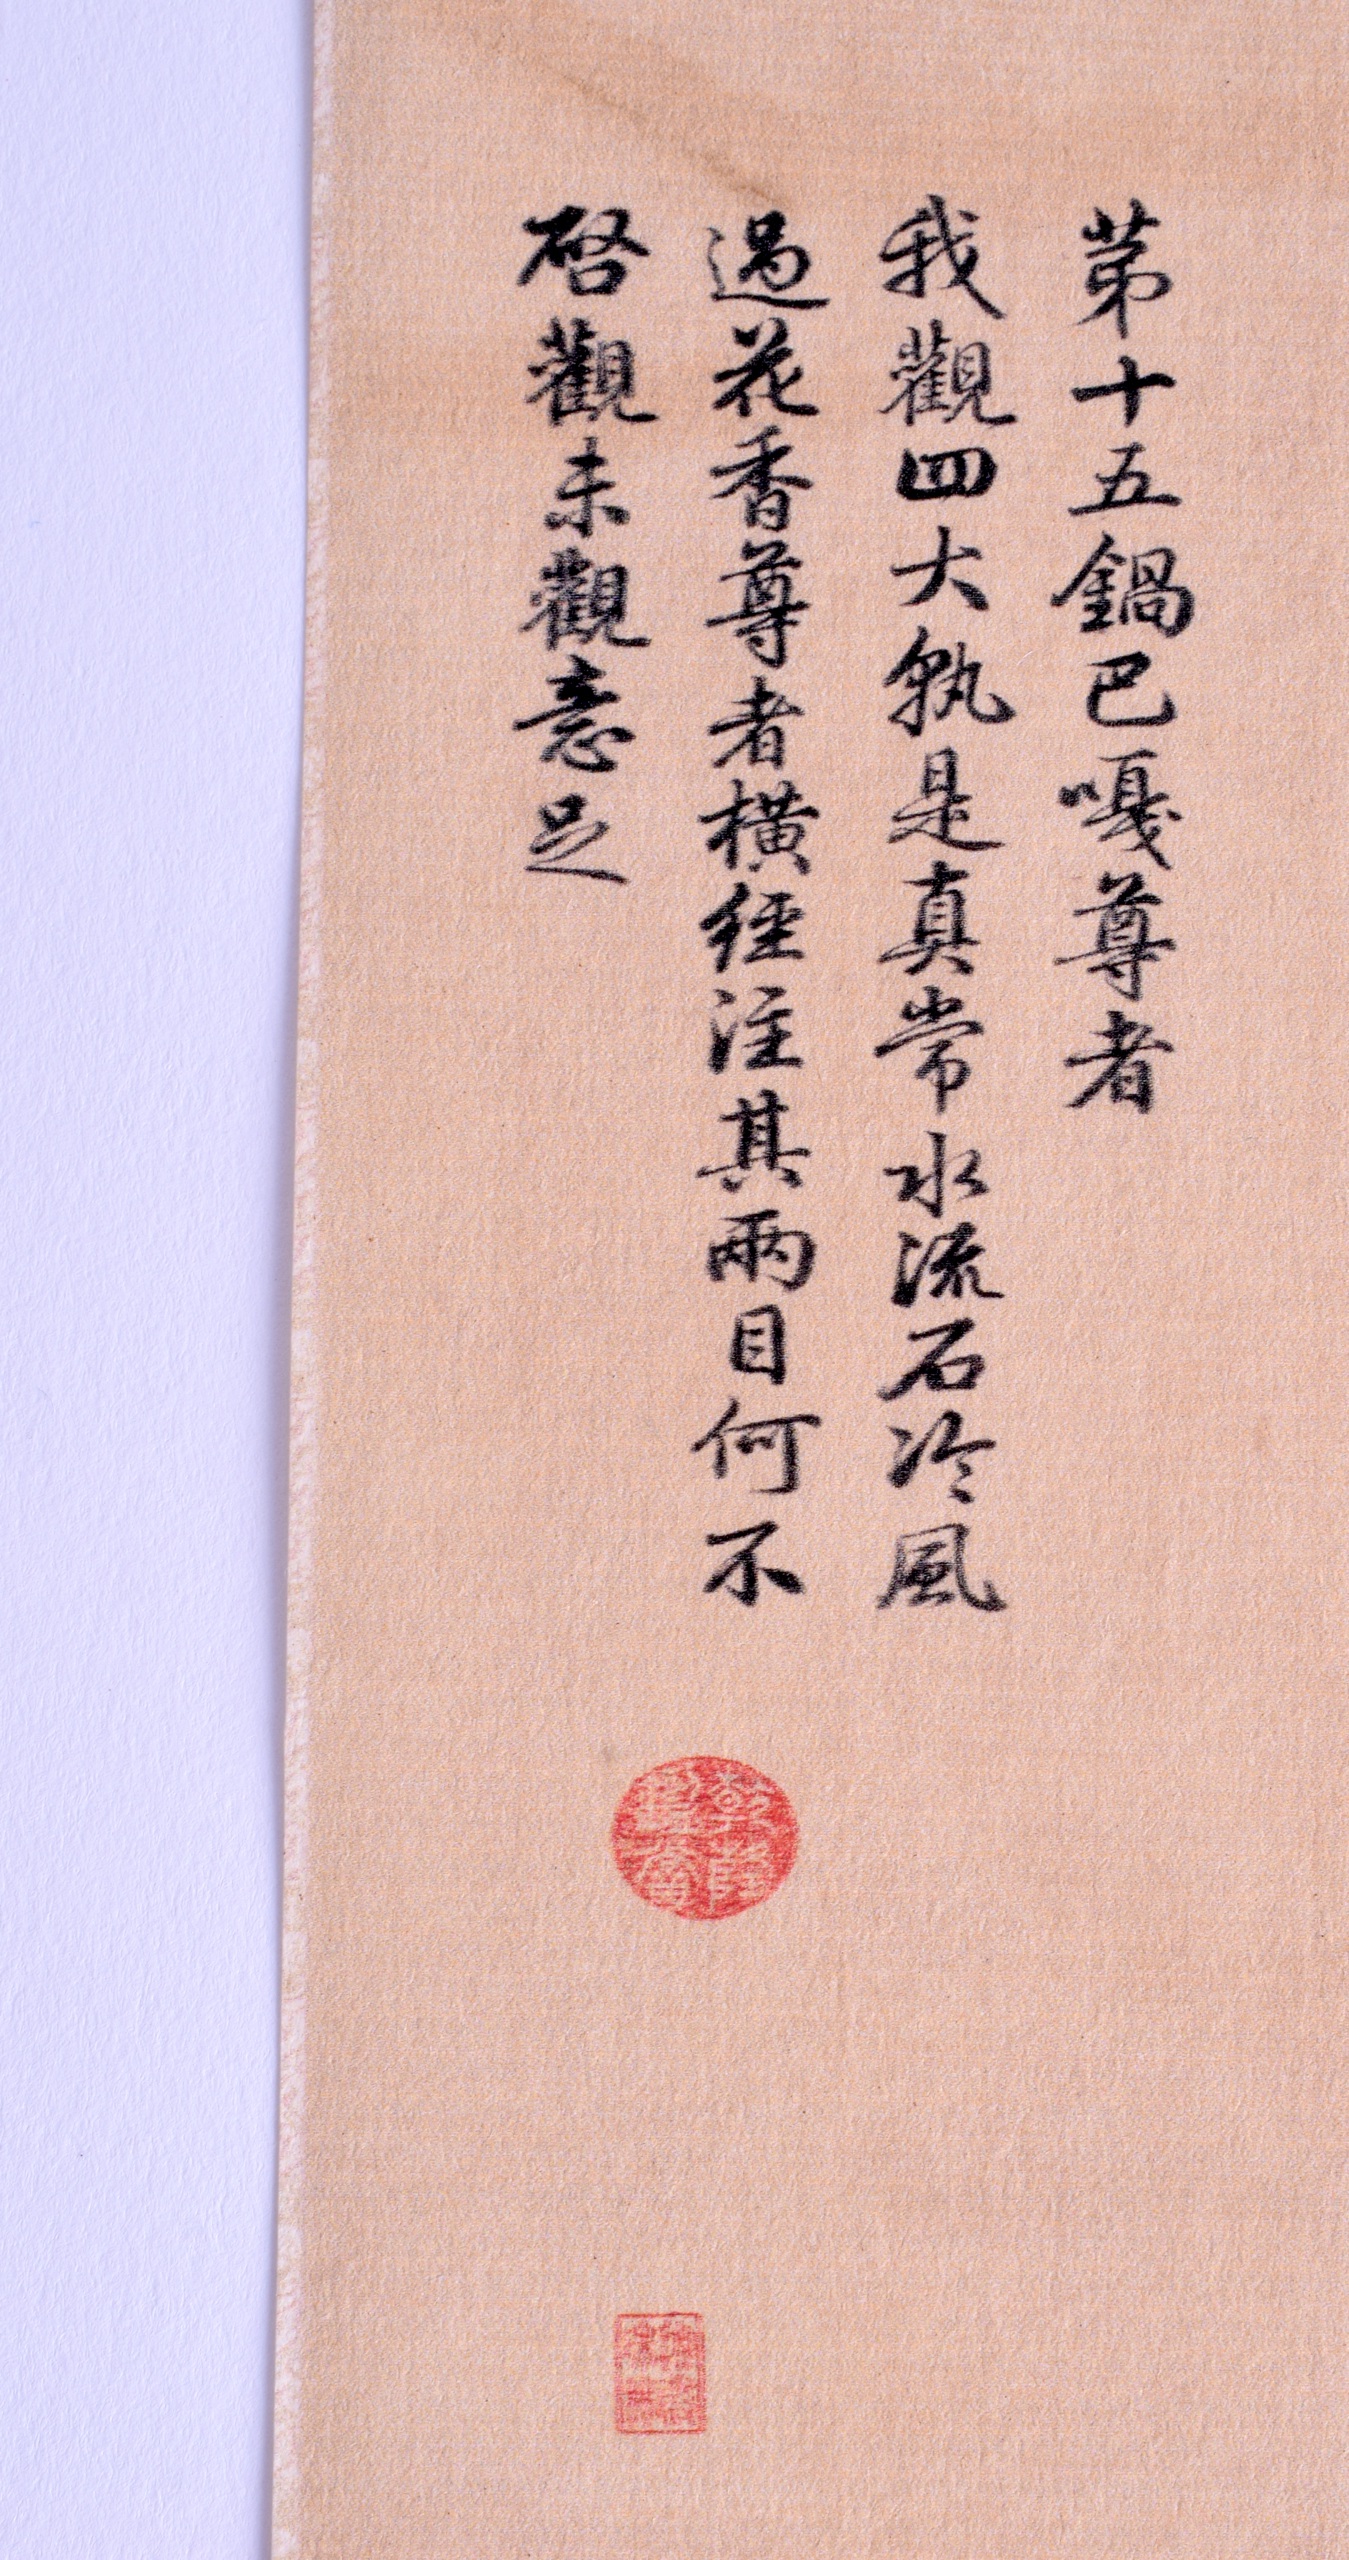 苐十五鍋巴嘎尊者
我觀四大孰是真常水流石冷風
過花香尊者橫經注其兩目何不
啓觀未觀意足